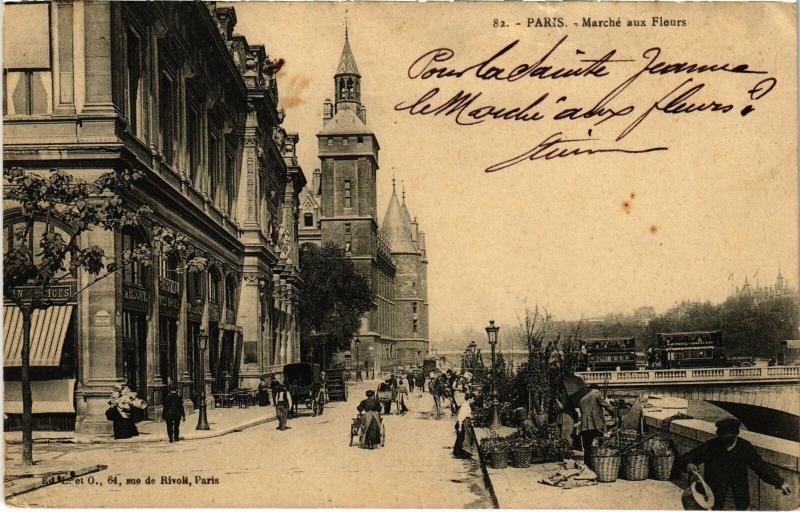 82. - PARIS. - Marché aux Fleurs
Pour la Sainte Jeanne
le Marché aux fleurs?
61, rue de Rivoli, Paris